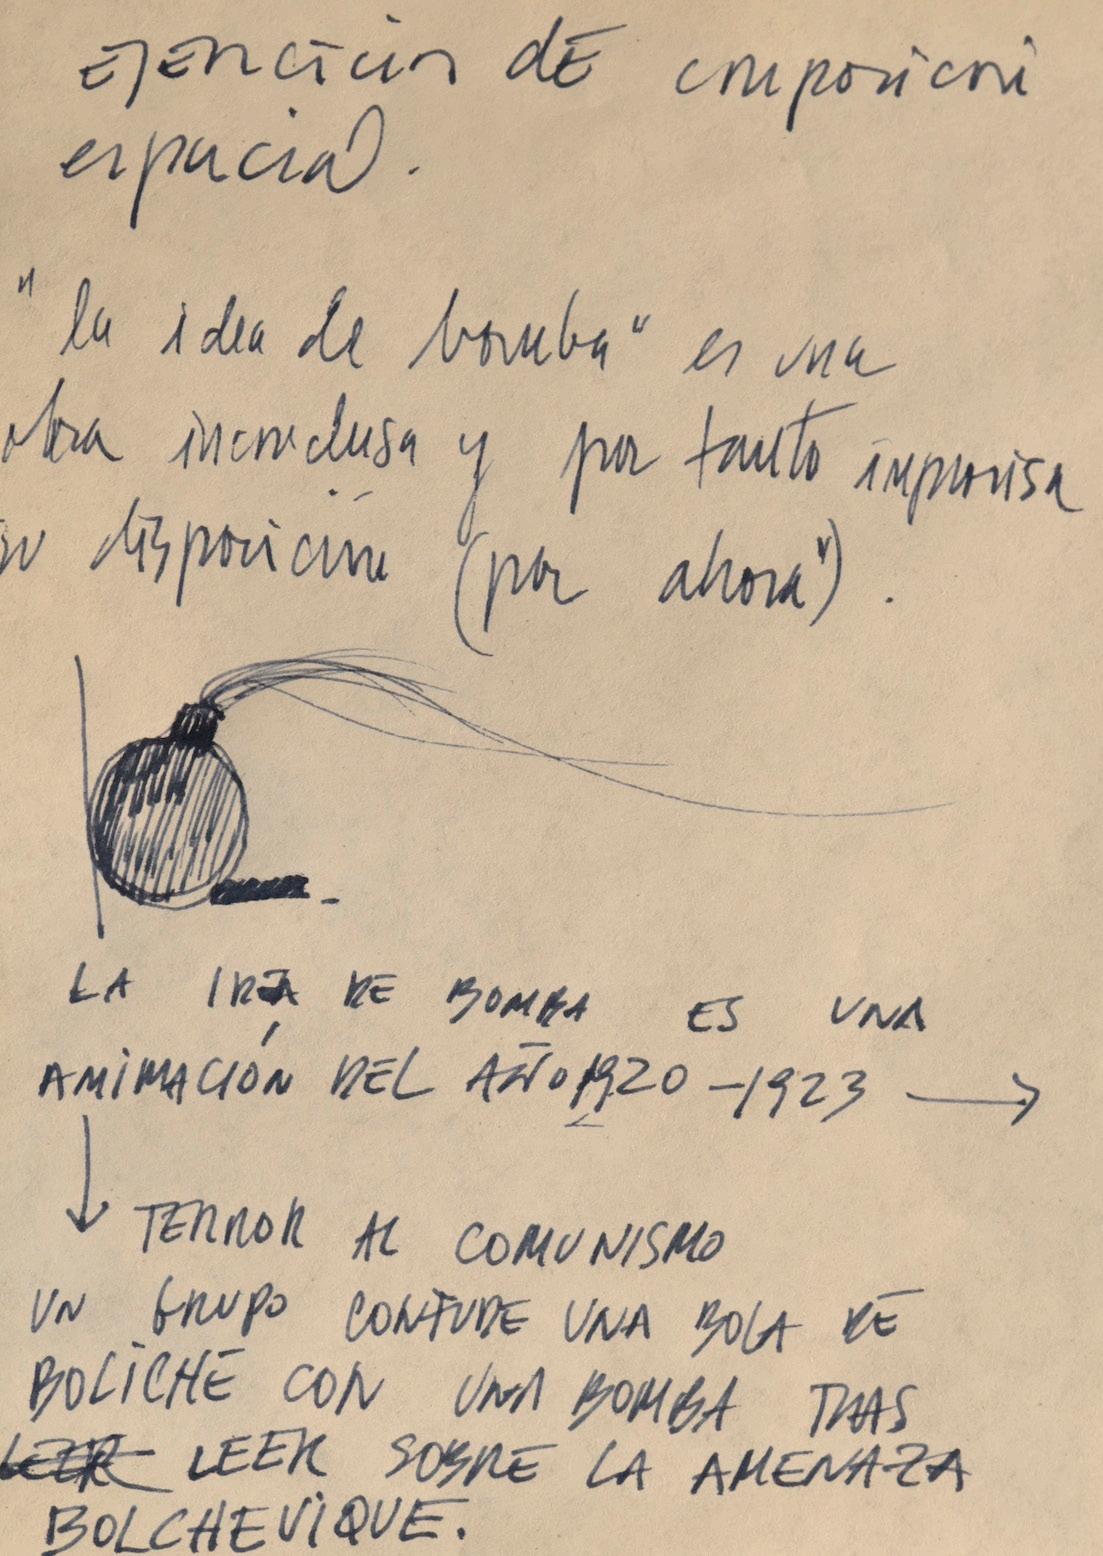 EJERCICIOS DE composición
espacial.
"la idea de bomba" es una
obra inconclusa y por tanto improvisa
su disposición (por ahora").
LA IDEA DE BOMBA ES UNA
ANIMACIÓN DEL AÑO 1920 - 1923 →
↓ TERROR AL COMUNISMO
UN GRUPO CONFUNDE UNA BOLA DE
BOLICHE CON UNA BOMBA TRAS
LEER LEER SOBRE LA AMENAZA
BOLCHEVIQUE.